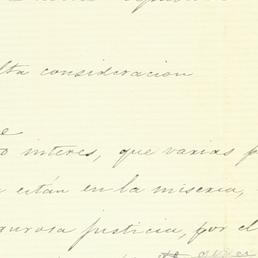 lta consideracion
e
o interes, que varias p
a están en la miseria,
gurosa justicia, por el